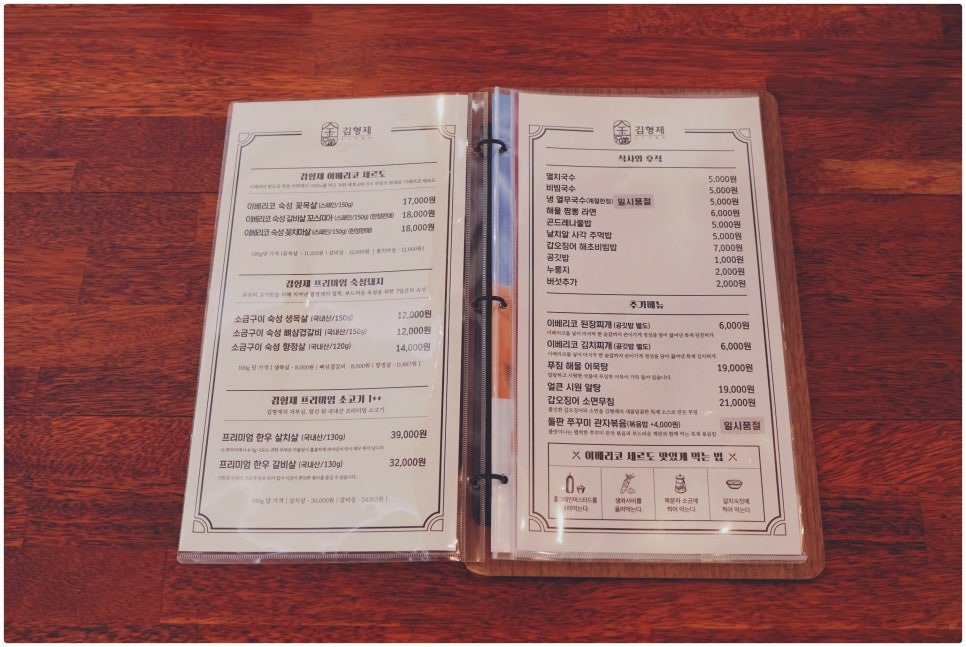 김형제
김형제 이베리코 세르도
이베리코 숙성 꽃목살 (스페인/150g) 17,000원
이베리코 숙성 갈비살 꼬스띠아 (스페인/150g) (한정판매) 18,000원
이베리코 숙성 꽃치마살 (스페인/150g) (한정판매) 18,000원
김형제 프리미엄 숙성돼지
소금구이 숙성 생목살 (국내산/150g) 12,000원
소금구이 숙성 뼈삼겹갈비 (국내산/150g) 12,000원
소금구이 숙성 항정살 (국내산/120g) 14,000원
100g당 가격 [ 생목살 - 8,000원 | 뼈삼겹갈비 - 8,000원 | 항정살 - 11,667원 ]
김형제 프리미엄 소고기 1++
김형제의 자부심, 엄선 된 국내산 프리미엄 소고기
프리미엄 한우 살치살 (국내산/130g) 39,000원
프리미엄 한우 갈비살 (국내산/130g) 32,000원
100g당 가격 [ 살치살 - 30,000원 | 갈비살 - 24,615원 ]
김형제
식사와 후식
멸치국수 5,000원
비빔국수 5,000원
냉 열무국수(계절한정) 일시품절 5,000원
해물 짬뽕 라면 6,000원
곤드레나물밥 5,000원
날치알 사각 주먹밥 5,000원
갑오징어 해초비빔밥 7,000원
공깃밥 1,000원
누룽지 2,000원
버섯추가 2,000원
추가메뉴
이베리코 된장찌개 (공깃밥 별도) 6,000원
이베리코 김치찌개 (공깃밥 별도) 6,000원
푸짐 해물 어묵탕 19,000원
얼큰 시원 알탕 19,000원
갑오징어 소면무침 21,000원
돌판 쭈꾸미 관자볶음(볶음밥 +4,000원) 일시품절
이베리코 세르도 맛있게 먹는 법
홀그레인머스터드를
올려먹는다.
생와사비를
올려먹는다.
복분자 소금에
찍어 먹는다.
갈치속젓에
찍어 먹는다.